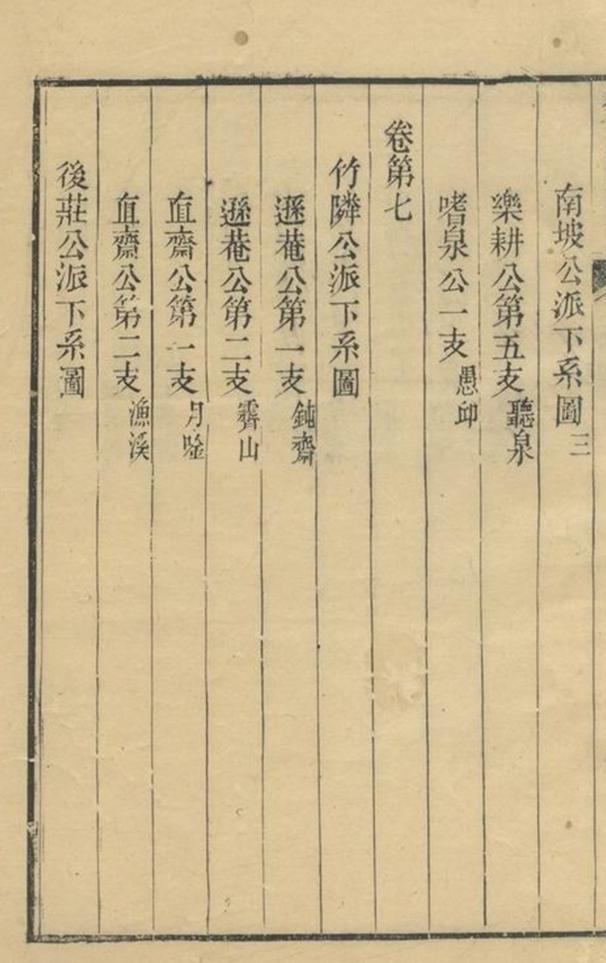 南坡公派下系圖三
樂耕公第五支聽泉
嗜泉公一支愚邱
卷第七
竹隣公派下系圖
遜菴公第一支鈍齋
遜菴公第二支霽山
直齋公第一支月
直齋公第二支漁溪
後莊公派下系圖